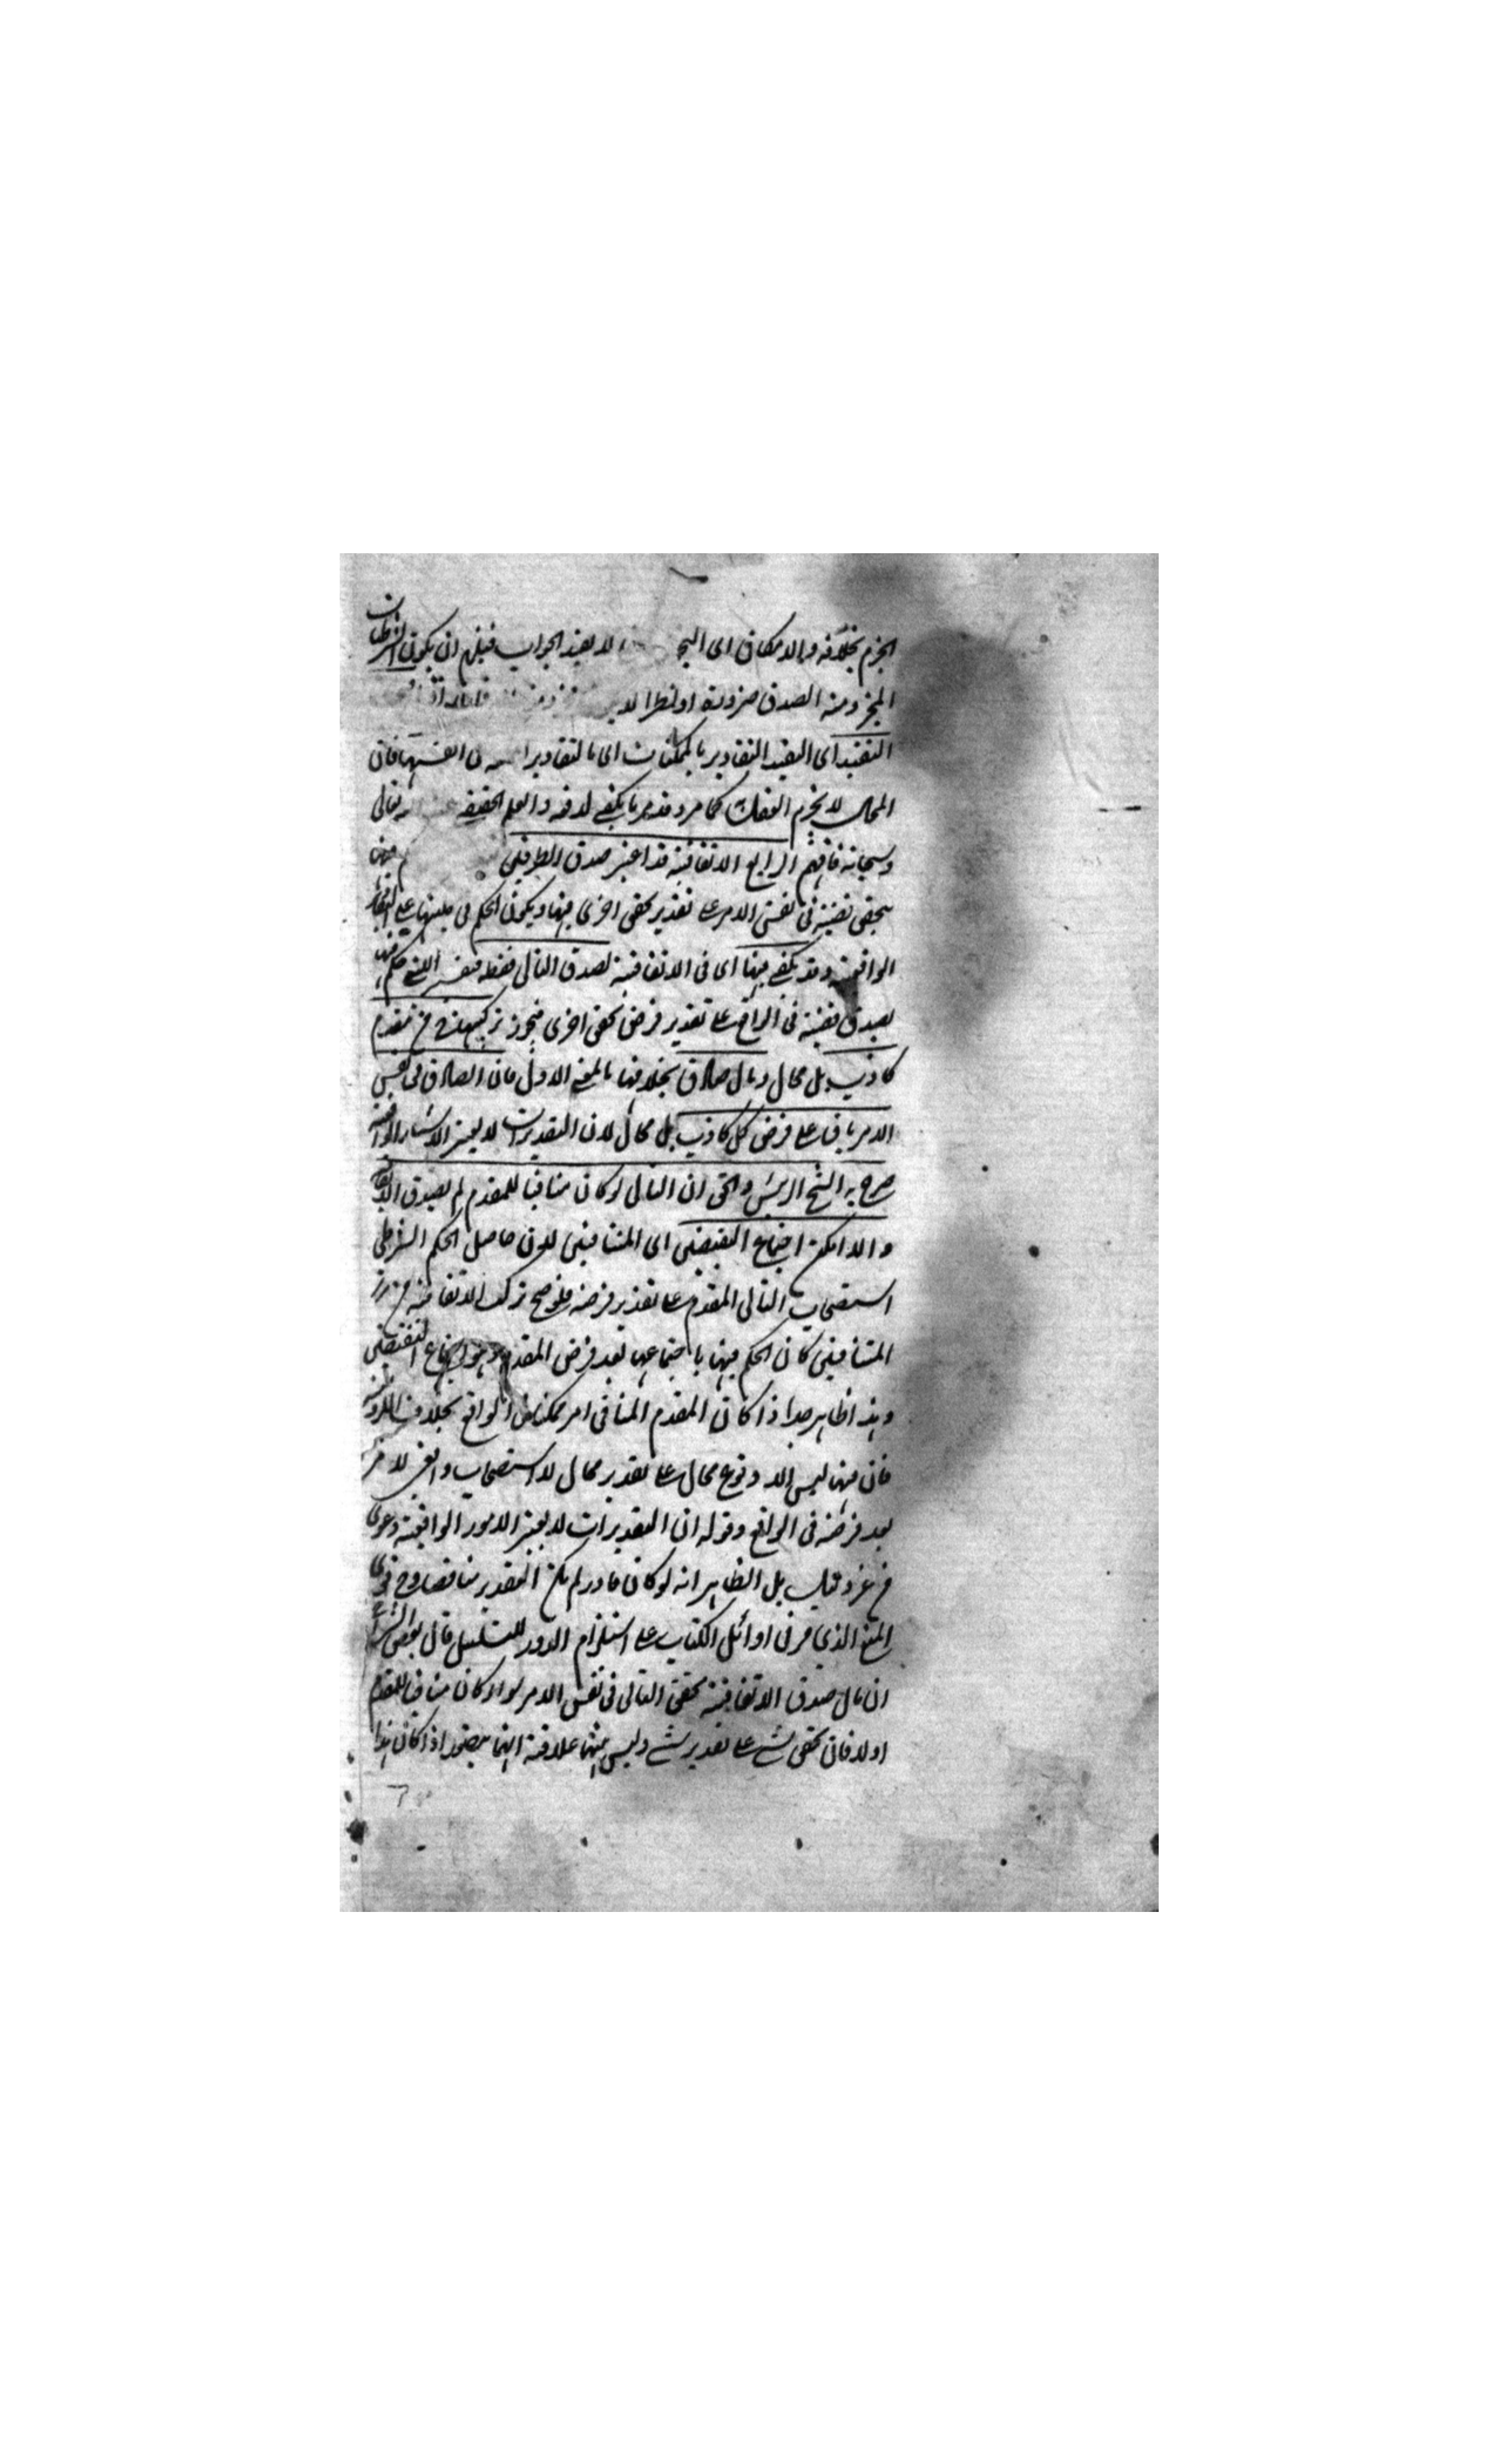 الجزم بخلافه والامكان اى التجـ لا يفيد الجواب فيلزم ان يكون الشرطيات
الجزومية الصدق ضرورة او نظرا لا
التقييد اى القيد التقادير بالممكنات اى بالتقادير الممكن انفسها فان
المحال لا يجزم العقل كما مر وقد مر ما يكفى لدفعه والعلم الحقيقة تعالى
وسبحانه فافهم الرابع الاتفاقية قد اعتبر صدق الطرفين فيها
تحقق قضية فى نفس الامر على تقدير تحقق اخرى فيها ويكون الحكم فى عليتها على التقادير
الواقعية وقد يكفى فيها اى فى الاتفاقية بصدق التالى فقط فتفسر التى حكم فيها
بصدق قضية فى الواقع على تقدير فرض تحقق اخرى فيجوز تركيبها من مقدم
كاذب بل محال وتال صادق بخلافها بالمعنى الاول فان الصادق فى نفس
الامر باق على فرض كل كاذب بل محال لان التقديرات لا يغير الاشياء الواقعية
صرح به الشيخ الرئيس والحق ان التالى لو كان منافيا للمقدم لم يصدق الاتفاقية
والا امكن اجتماع النقيضين اى المتنافيين لان حاصل الحكم الشرطى
استصحاب التالى المقدم على تقدير فرضه فلو صح تركب الاتفاقية من
المتنافيين كان الحكم فيها باجتماعهما بعد فرض المقدم وهو اجتماع النقيضين
وهذا ظاهر جدا اذا كان المقدم المنافى امر ممكنا فى الواقع بخلاف اللزومية
فان فيها ليس الا وقوع محال على تقدير محال لا استصحاب واقعى لامر
بعد فرضه فى الواقع وقوله ان التقديرات لا يغير الامور الواقعية دعوى
من غير دليل بل الظاهر انه لو كان قادر لم يكن التقدير مناقضا ومن قوى
المنع الذى مر فى اوائل الكتاب على استلزام الدور للتسلسل قال بعض الشراح
ان مآل صدق الاتفاقية تحقق التالى فى نفس الامر سواء كان منافيا للمقدم
اولا فان تحقق شئ على تقدير شئ وليس بينهما علاقة انما يتصور اذا كان هذا